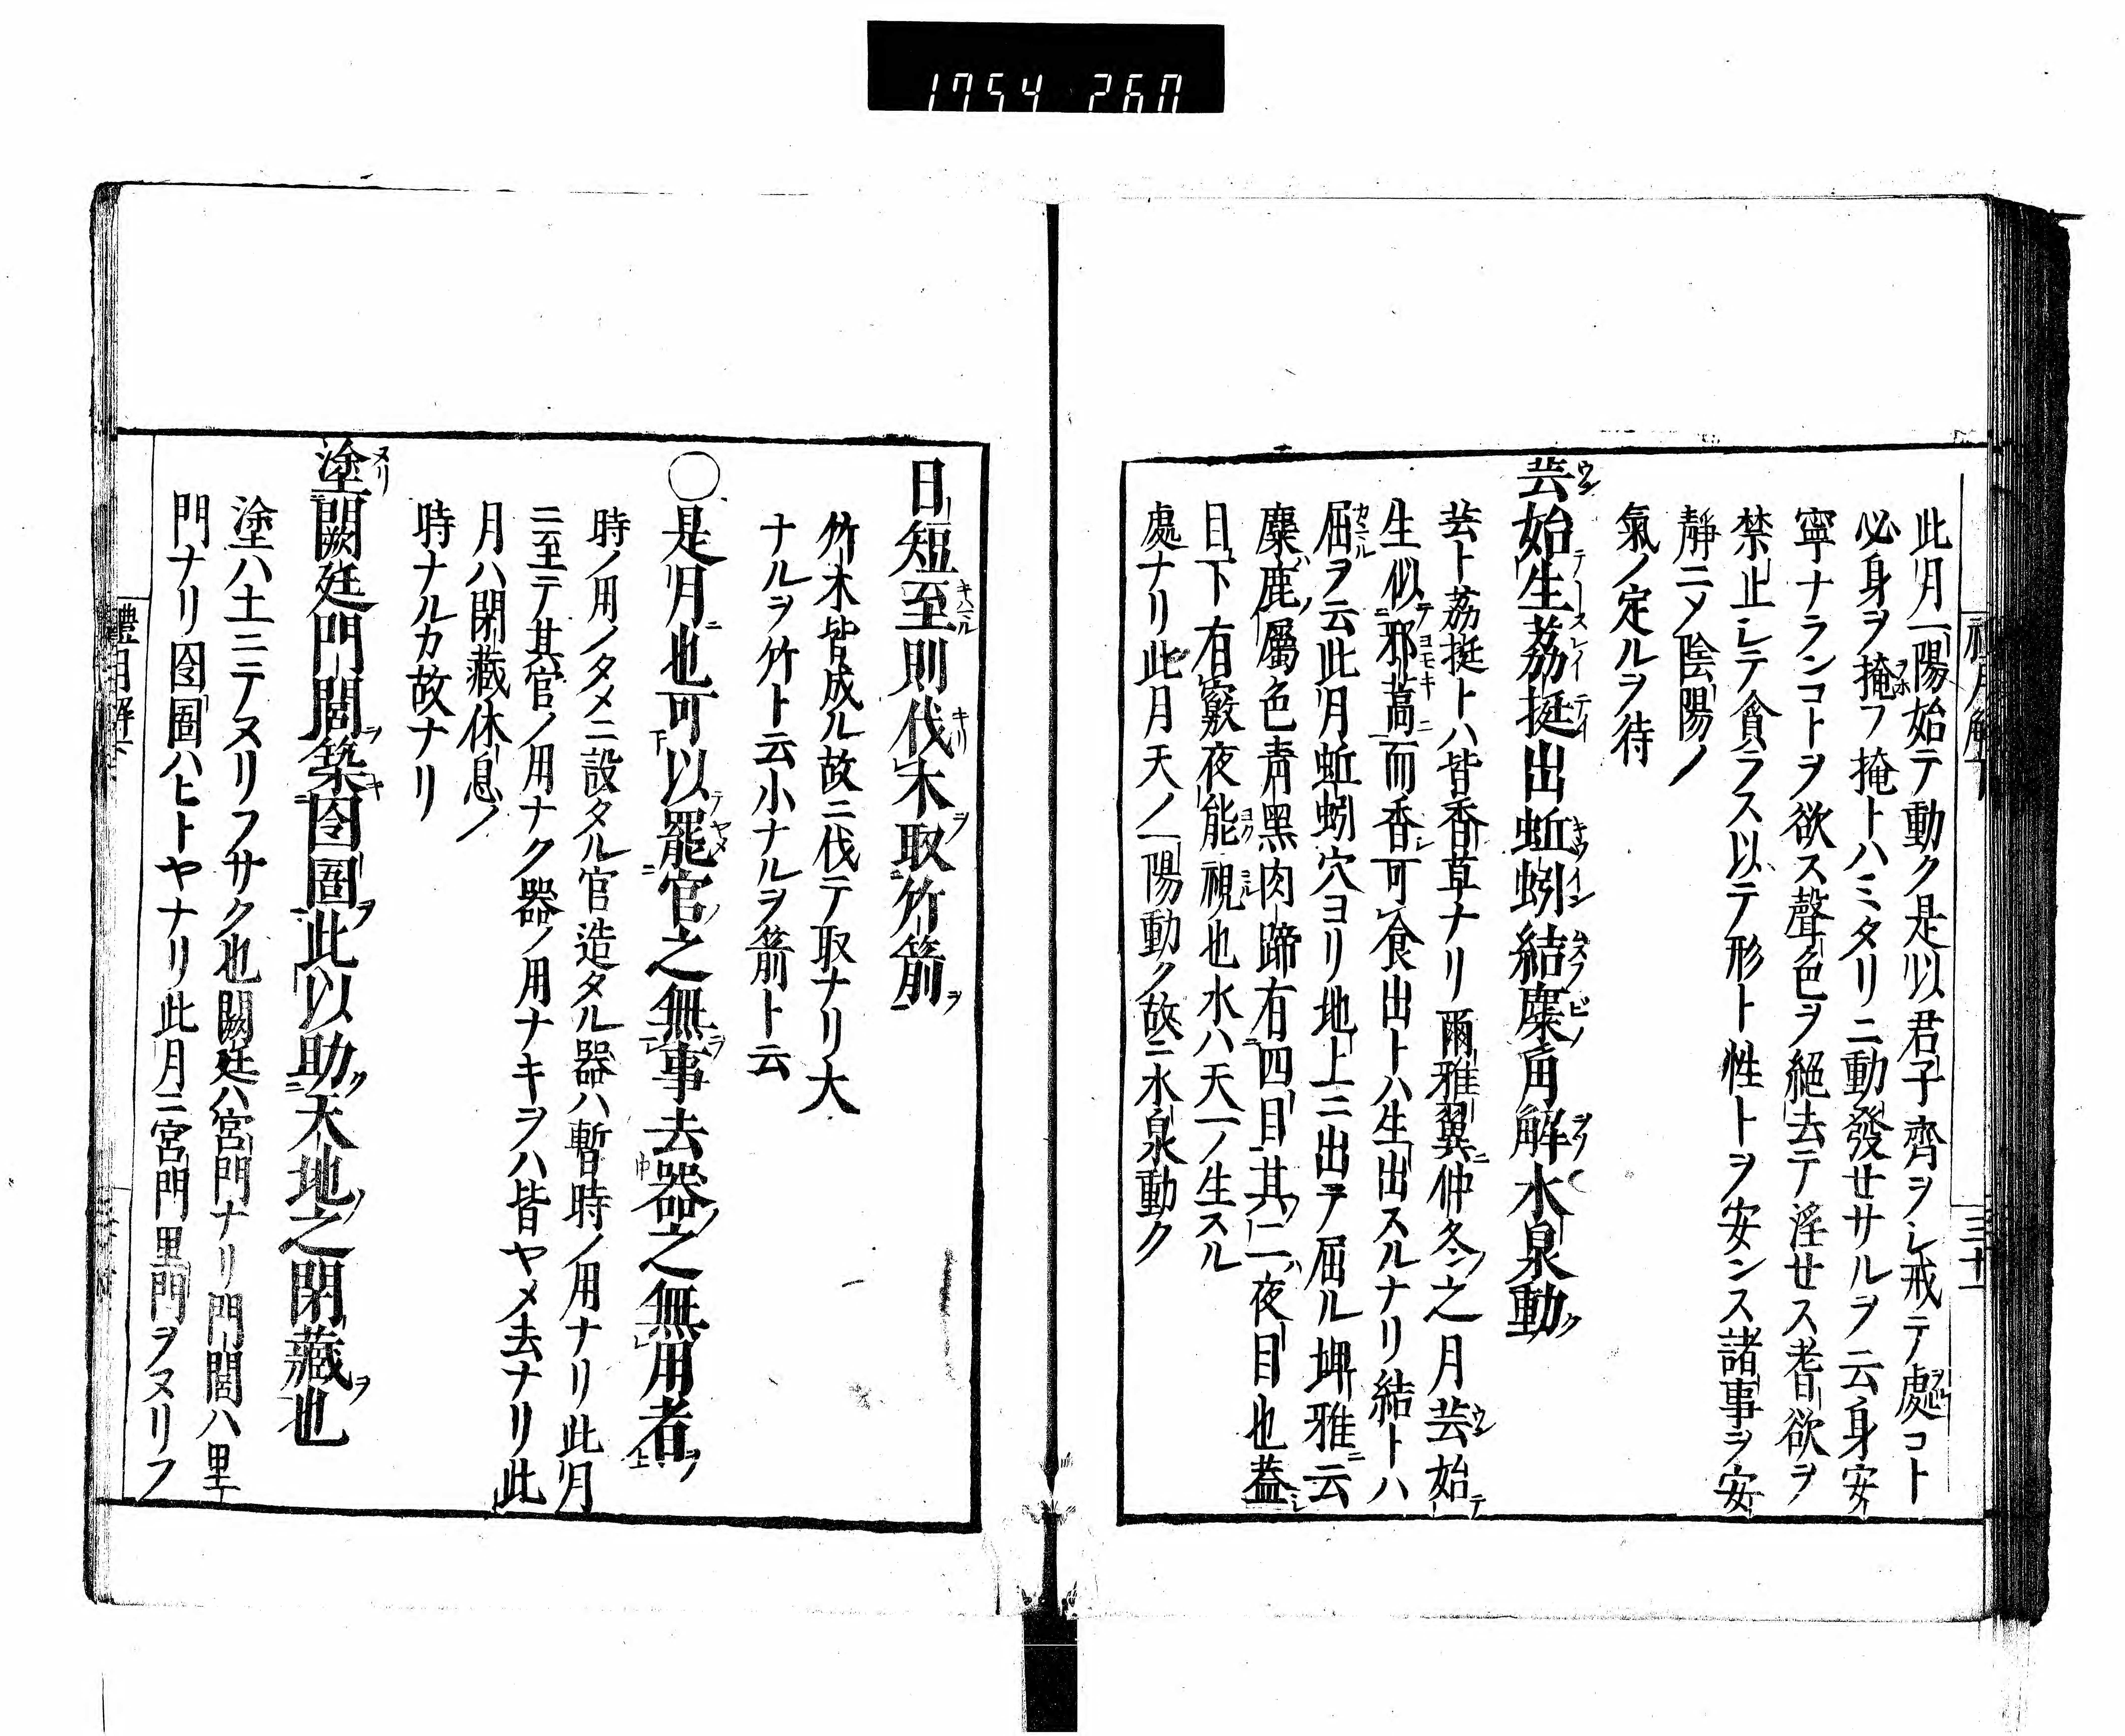 1754 260
此月一陽始テ動ク是以君子齊ヲシ戒テ處コト
必身ヲ掩フ掩トハミタリニ動發せサルヲ云身安
寧ナランコトヲ欲ス聲色ヲ絕去テ淫せス耆欲ヲ
禁止レテ貪ラス以テ形ト性トヲ安ンス諸事ヲ安
靜ニメ陰陽ノ
氣ノ定ルヲ待
芸始生荔挺出蚯蚓結麋角解水泉動
芸ト荔挺トハ皆香草ナリ爾雅翼仲冬之月芸始
生似邪蒿而香可食出トハ生出スルナリ結トハ
屈ヲ云此月蚯蚓穴ヨリ地上ニ出テ屈ル埤雅云
麋鹿屬色青黑肉蹄有四目其二夜目也蓋
目下有竅夜能視也水ハ天一ノ生スル
處ナリ此月天ノ一陽動ク故ニ水泉動ク
日短至則伐木取竹箭
竹木皆成ル故ニ伐テ取ナリ大
ナルヲ竹ト云小ナルヲ箭ト云
○是月也可以罷官之無事去器之無用者
時ノ用ノタメニ設タル官造タル器ハ暫時ノ用ナリ此月
ニ至テ其官ノ用ナク器ノ用ナキヲハ皆ヤメ去ナリ此
月ハ閉藏休息ノ
時ナルカ故ナリ
塗闕廷門閭築囹圄此以助天地之閉藏也
塗ハ土ニテヌリフサク也闕廷ハ宮門ナリ門閭ハ里
門ナリ囹圄ハヒトヤナリ此月ニ宮門里門ヲヌリフ
禮月解下